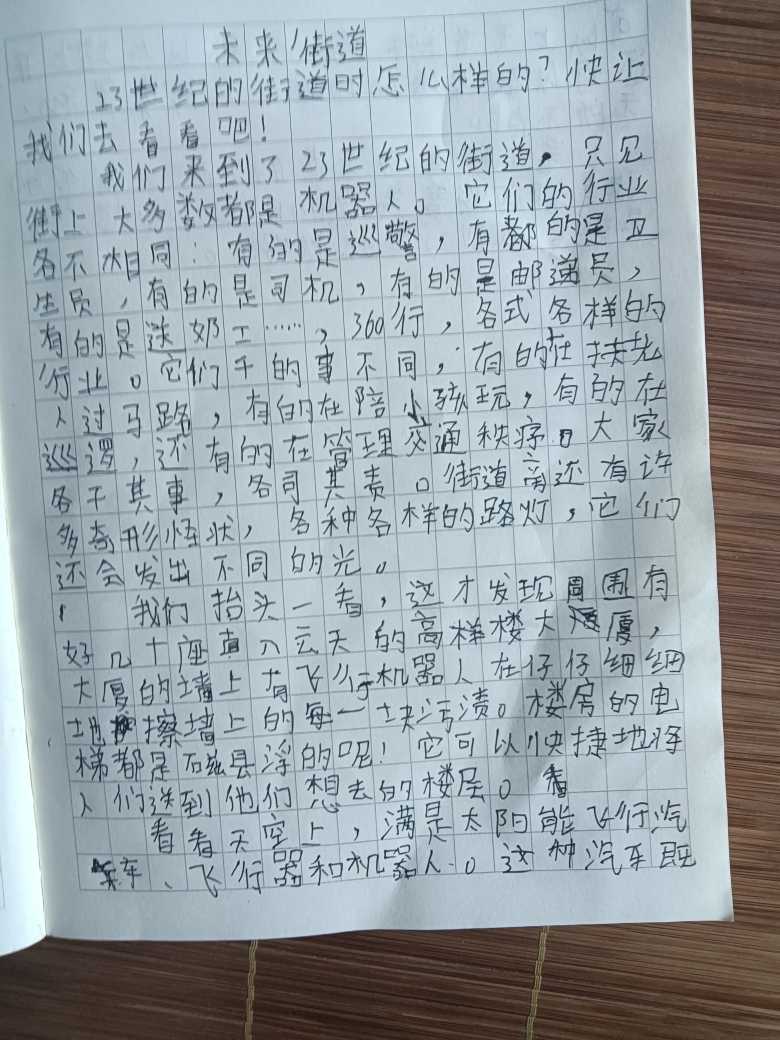 未来街道
23世纪的街道时怎么样的？快让
我们去看看吧！
我们来到了23世纪的街道，只见
街上大多数都是机器人。它们的行业
各不相同：有的是巡警，有都的是卫
生员，有的是司机，有的是邮递员，
有的是送奶工……，360行，各式各样的
行业。它们干的事不同，有的在扶老
人过马路，有的在陪小孩玩，有的在
巡逻，还有的在管理交通秩序。大家
各干其事，各司其责。街道旁还有许
多奇形怪状，各种各样的路灯，它们
还会发出不同的光。
我们抬头一看，这才发现周围有
好几十座直入云天的高样楼大厦，
大厦的墙上有飞行机器人在仔仔细细
地擦墙上的每一块污渍。楼房的电
梯都是磁悬浮的呢！它可以快捷地将
人们送到他们想去的楼层。看
看看天空上，满是太阳能飞行汽
车、飞行器和机器人。这种汽车既